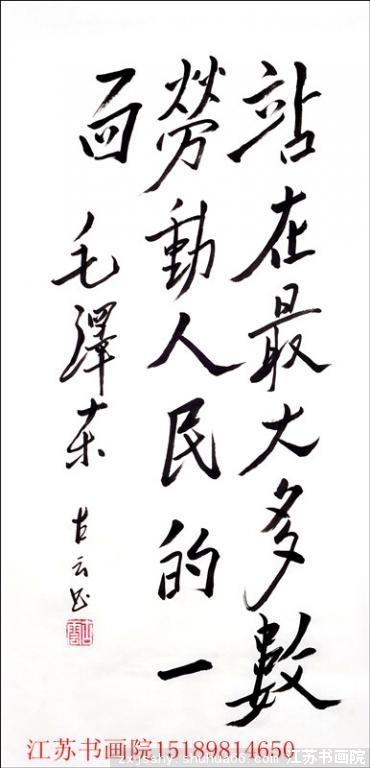 站在最大多數
勞動人民的一
面
毛澤东
古云书
江苏书画院15189814650
zxjsshy.shuhua66.com江苏书画院